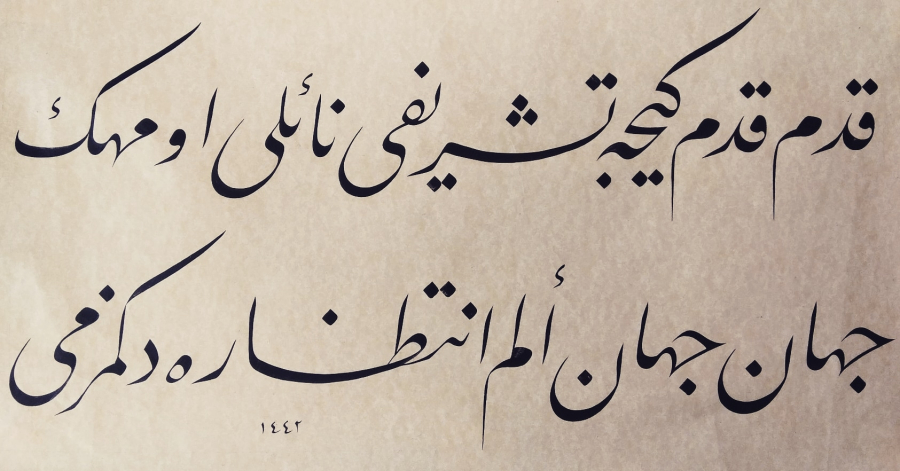 قدم قدم كیجه تشریفی نائلی او مهك
جهان جهان ألم انتظاره دكمزمی
١٤٤٢